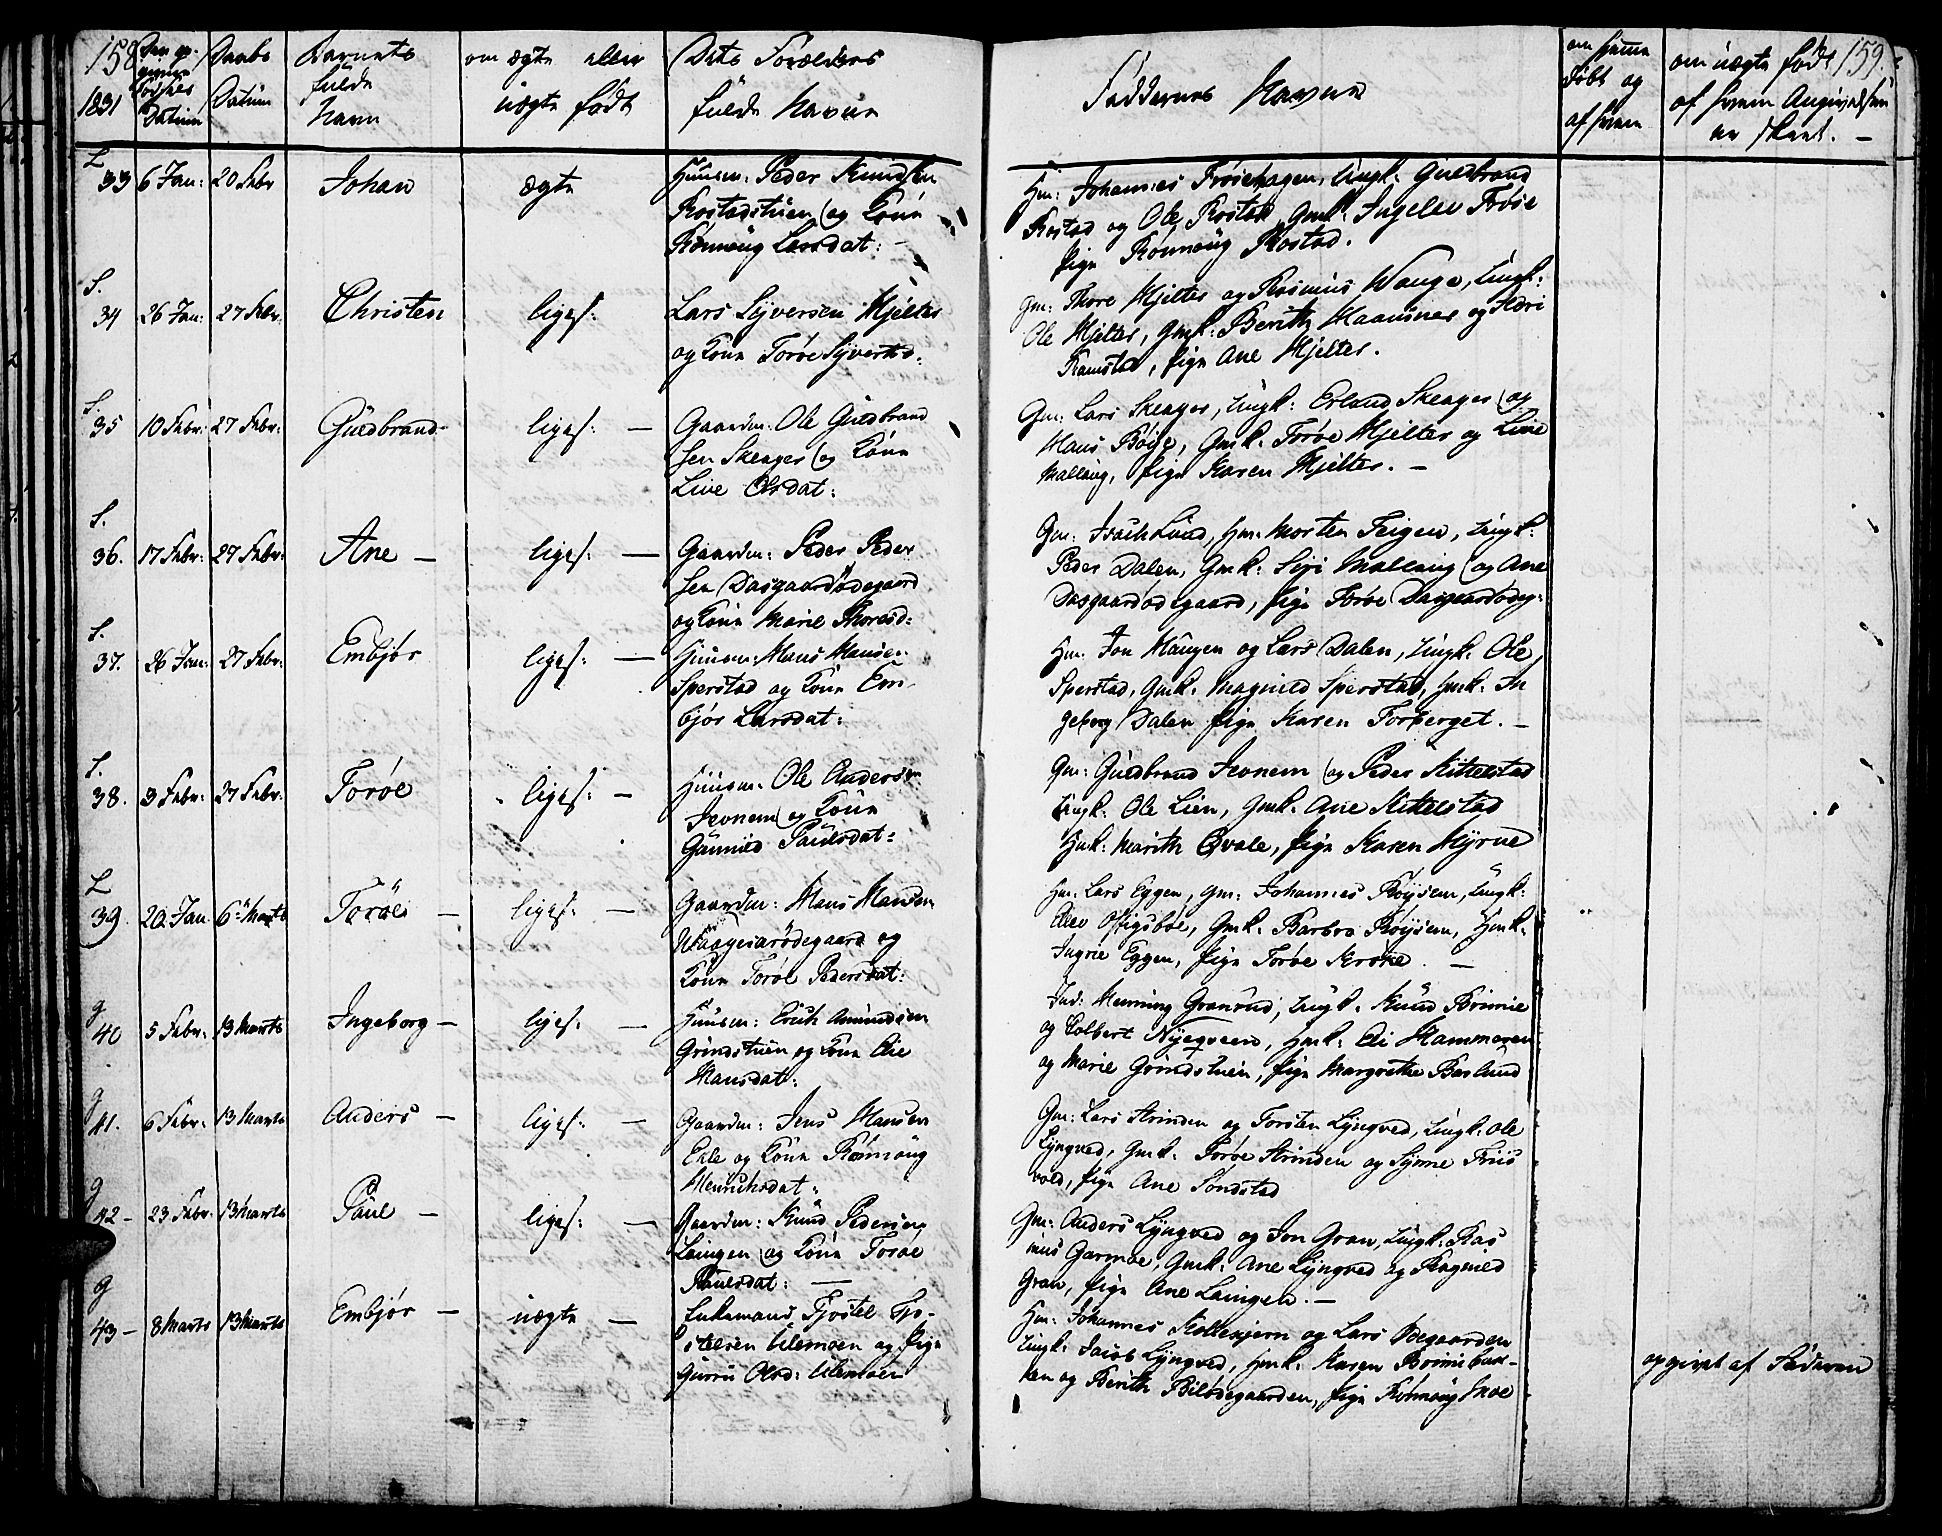 158
1831
Den op-
givne
Datum
Daabs
Datum
Barnets
fulde
Navn
om ægte eller
uægte født
Dets Forældres
fulde Navne
Faddernes Navne
om hjemme
døbt og
af hvem
om uægte født
af hvem Angivelsen
er skeet. —
159.
L
33 6 Jan: 20 Febr Johan ægte
Huusm: Peder Knudsen
Rostadstuen og Kone
Rønnaug Larsdat: —
Hm: Johannes Frøisehagen, Ungk: Guldbrand
Rostad og Ole Rostad, Gmk: Ingeleie Frøise
Pige Rønnaug Rostad.
S.
34 26 Jan: 27 Febr. Christen liges:
Lars Syversen Hjelter
og Kone Torøe Syversd:
Gm: Thore Hjelter og Rasmus Wange, Ungk:
Ole Hjelter, Gmk: Berith Haansnes og
Ramstad, Pige Ane Hjelter.
S.
35 10 Febr: 27 Febr: Guldbrand liges: —
Gaardm: Ole Guldbrand
sen Skenges og Kone
Live Olsdat:
Gm: Lars Skenges, Ungk: Erland Skenges og
Hans Bøie, Gmk: Torøe Hjelter og Live
Mallung, Pige Karen Hjelter. —
S.
36. 17 Febr: 27 Febr: Ane — liges: —
Gaardm: Peder Peder
sen Dasgaardødegaard
og Kone Marie Thoresd:
Gm: Isach Lund, Hm: Morten Teigen, Ungk:
Peder Dalen, Gmk: Siri Mallung og Ane
Dasgaardødegaard, Pige Torøe Dasgaardødeg:
S.
37. 26 Jan: 27 Febr: Embjør liges: —
Huusm: Hans Hansen
Sperstad og Kone Em-
bjør Larsdat:
Hm: Jon Haugen og Lars Dalen, Ungk: Ole
Sperstad, Gmk: Magnild Sperstad, Hmk: In
geborg Dalen Pige Karen Forberget. —
S.
38. 3 Febr: 27 Febr. Torøe liges: —
Huusm: Ole Andersen
Jevnem og Kone
Gunnild Paulsdat:
Gm: Guldbrand Jevnem og Peder Kittelstad
Ungk: Ole Lien, Gmk: Ane Kittelstad
Hmk: Marith Qvale, Pige Karen Myrne
L
39. 20 Jan 6te Marts Torøe — liges: —
Gaardm: Hans Hansen
Waagesarødegaard og
Kone Torøe Pedersdat:
Hm: Lars Eggen, Gm: Johannes Røysem, Ungk:
Elev Offigsbøe, Gmk: Barbro Røysem, Hmk:
Ingrie Eggen, Pige Torøe Kroke. —
g
40 5 Febr: 13 Marts Ingeborg — liges: —
Huusm: Erich Amundsen
Grindstuen og Kone Elie
Hansdat:
Ind: Henning Gransrud, Ungk: Knud Brimie
og Colbert Nyeqveen, Hmk: Eli Hammeren
og Marie Grindstuen, Pige Margrethe Baslund
g
41. 6 Febr: 13 Marts Anders — liges: —
Gaardm: Jens Hansen
Ekle og Kone Rønnaug
Henrichsdat:
Gm: Lars Strinden og Torsten Lyngved, Ungk: Ole
Lyngved, Gmk: Torøe Strinden og Synne Friis
vold, Pige Ane Sondstad
g
42 — 23 Febr: 13 Marts Paul — liges: —
Gaardm: Knud Pedersen
Laingen og Kone Torøe
Paulsdat: —
Gm: Anders Lyngved og Jon Gran, Ungk: Ras
mus Garmoe, Gmk: Ane Lyngved og Ragnild
Gran, Pige Ane Laingen. —
g
43 — 8 Marts 13 Marts Embjør — uægte —
Enkemand Tjostel Tjo-
stelsen Ulemoen og Pige
Gurru Olsd: Ulemoen
Hm: Johannes Kollekjern og Lars Ødegaarden
Ungk: Jacob Lyngved, Hmk: Karen Brimiebak-
ken og Berith Biløødegaarden, Pige Rønnaug Moe
opgivet af Faderen